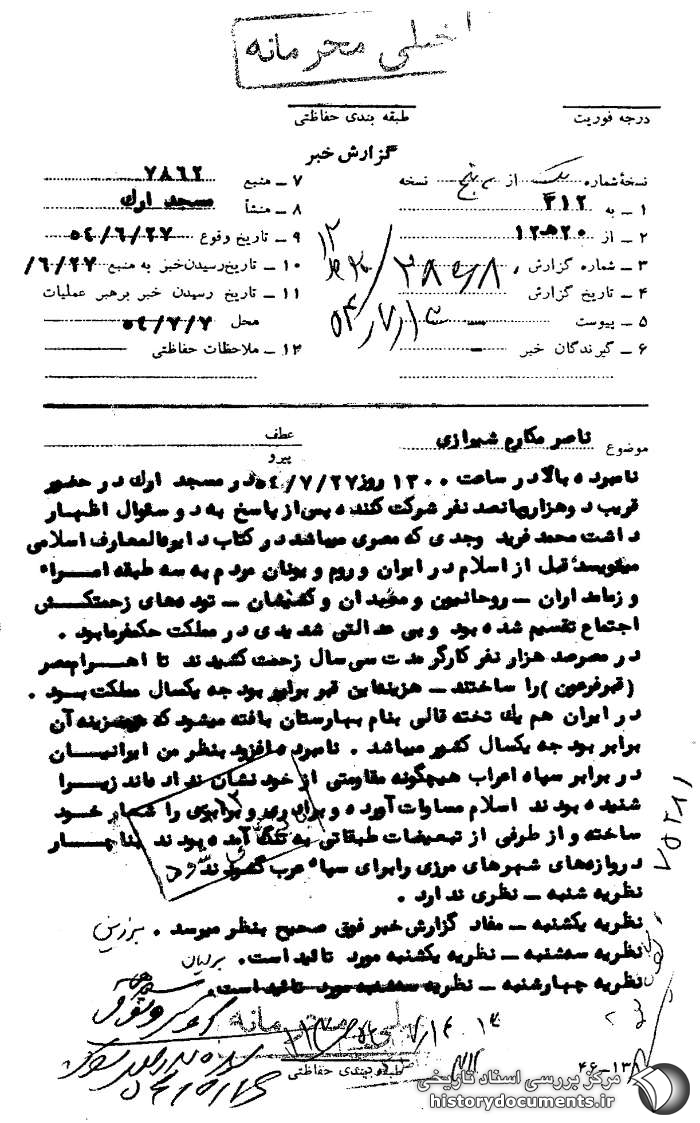 خیلی محرمانه
درجه فوریت
طبقه بندی حفاظتی
گزارش خبر
نسخهٔ شماره یک از پنج نسخه
۱ ـ به ۳۱۲
۲ ـ از ۲۰ه۱۲
۳ ـ شماره گزارش
۴ ـ تاریخ گزارش
۵ ـ پیوست ـ
۶ ـ گیرندگان خبر ـ
۷ ـ منبع ۷۸۶۲
۸ ـ منشأ مسجد ارك
۹ ـ تاریخ وقوع ۵۴/۶/۲۷
۱۰ ـ تاریخ رسیدن خبر به منبع /۶/۲۷
۱۱ ـ تاریخ رسیدن خبر برهبر عملیات
محل ۵۴/۷/۷
۱۲ ـ ملاحظات حفاظتی
موضوع ناصر مکارم شیرازی
عطف
پیرو
نامبرده بالا در ساعت ۱۳۰۰ روز ۵۴/۷/۲۷ در مسجد ارك در حضور
قریب دوهزاروپانصد نفر شرکت کننده پس از پاسخ به دو سئوال اظهار
داشت محمد فرید وجدی که مصری میباشد در کتاب دایره‌المعارف اسلامی
مینویسد قبل از اسلام در ایران و روم و یونان مردم به سه طبقه امراء
و زمامداران ـ روحانیون و موبدان و کشیشان ـ توده‌های زحمتکش
اجتماع تقسیم شده بود و بی عدالتی شدیدی در مملکت حکمفرما بود .
در مصر صد هزار نفر کارگر مدت سی سال زحمت کشیدند تا اهرام مصر
(قبر فرعون) را ساختند ـ هزینه این قبر برابر بودجه یکسال مملکت بود .
در ایران هم یك تخته قالی بنام بهارستان بافته میشود که هزینه آن
برابر بودجه یکسال کشور میباشد . نامبرده افزود بنظر من ایرانیان
در برابر سپاه اعراب هیچگونه مقاومتی از خود نشان نداده‌اند زیرا
شنیده بودند اسلام مساوات آورده و برادری و برابری را شعار خود
ساخته و از طرفی از تبعیضات طبقاتی به تنگ آمده بودند بناچار
دروازه‌های شهرهای مرزی را برای سپاه عرب گشودند
نظریه شنبه ـ نظری ندارد .
نظریه یکشنبه ـ مفاد گزارش خبر فوق صحیح بنظر میرسد .
نظریه سه‌شنبه ـ نظریه یکشنبه مورد تائید است .
نظریه چهارشنبه ـ نظریه سه‌شنبه مورد تائید است .
خیلی محرمانه
طبقه بندی حفاظتی
مرکز بررسی اسناد تاریخی
historydocuments.ir